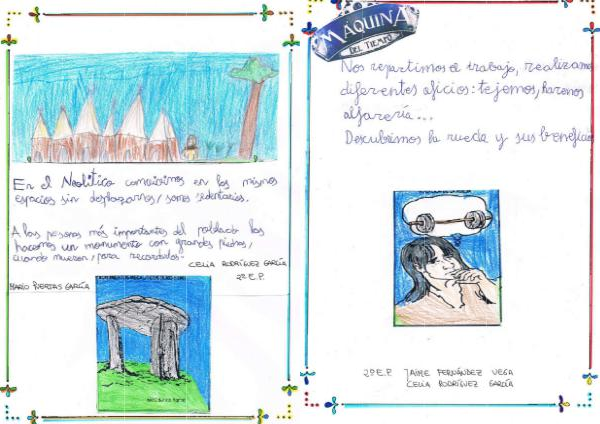 En el Neolítico convivimos en los mismos
espacios sin desplazarnos, somos sedentarios.
A las personas más importantes del poblado les
hacemos un monumento con grandes piedras,
cuando mueren, para recordarlos.
CELIA RODRÍGUEZ GARCÍA
2º E.P.
MARIO PUERTAS GARCÍA
MÁQUINA
DEL TIEMPO
Nos repartimos el trabajo, realizamos
diferentes oficios: tejemos, hacemos
alfarería...
Descubrimos la rueda y sus beneficios
2º E.P. JAIME FERNÁNDEZ VEGA
CELIA RODRÍGUEZ GARCÍA